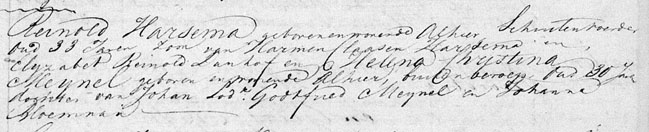 Reinold Harsema geboren en wonende Alhier Schuitenvoerder
oud 33 Jaren Zoon van Harmen Claassen Harsema en
Elyzabet Reinold Lanhof en Helena Chrystina
Meynel geboren en wonende Alhier, buiten beroep, Oud 30 Jaar
Dochter van Johan Lod: Godtfried Meynel en Johanna
Moemman